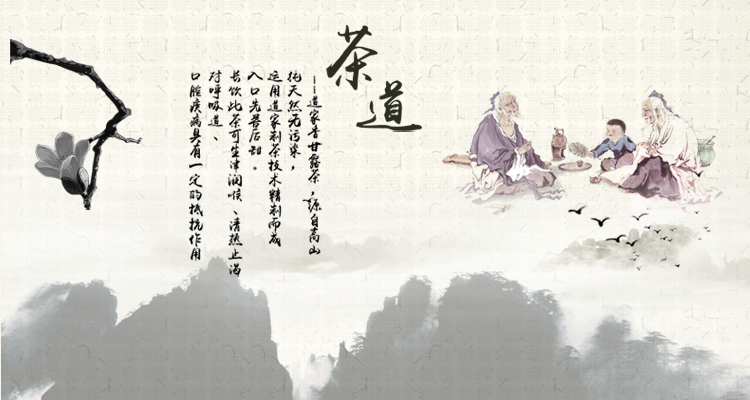 茶道
——道家昔甘露茶，源自高山
纯天然无污染，
运用道家制茶技术精制而成
入口先苦后甜。
长饮此茶可生津润喉、清热止渴
对呼吸道、
口腔疾病具有一定的抵抗作用